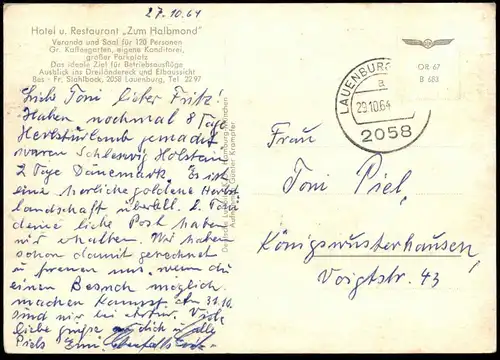 27.10.64
Hotel u. Restaurant „Zum Halbmond"
Veranda und Saal für 120 Personen
Gr. Kaffeegarten, eigene Konditorei,
großer Parkplatz
Das ideale Ziel für Betriebsausflüge
Ausblick ins Dreiländereck und Elbaussicht
Bes. Fr. Stahlbock, 2058 Lauenburg, Tel 22 97
Liebe Toni lieber Fritz!
Haben nochmal 8 Tage
Herbsturlaub gemacht
waren Schleswig Holstein
2 Tage Dänemark. Es ist
eine herrliche goldene Herbst
landschaft überall. L. Toni
deine liebe Post haben
wir erhalten. Wir haben
schon damit gerechnet
u freuen uns, wenn du
einen Besuch möglich
machen kannst. Am 31.10.
sind wir Viele
liebe Grüße an dich u alle
Piels
Deutsche Luftbild
Hamburg
München
Aufnahme: Günter Krampfer
LAUENBURG
a
29.10.64
2058
OR 67
B 683
Frau
Toni Piel,
Königswusterhausen,
Voigtstr. 43